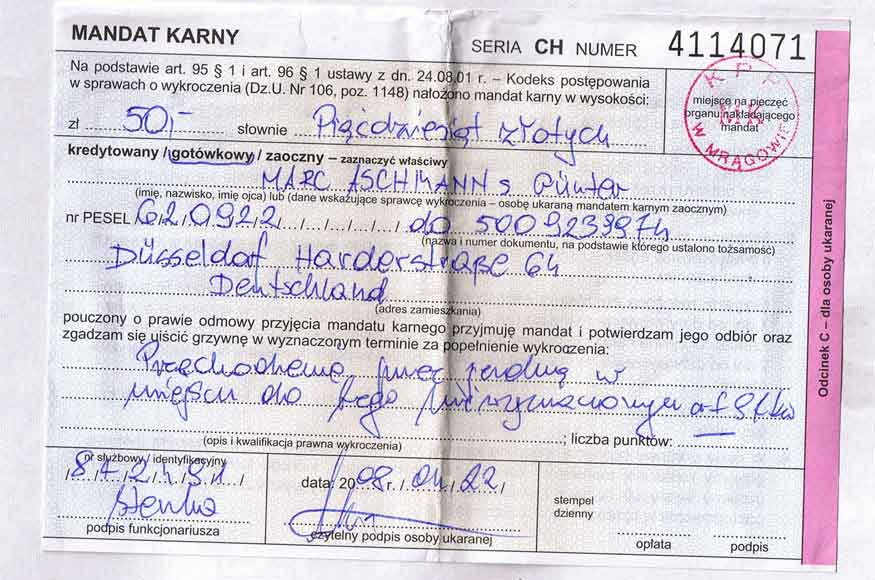 MANDAT KARNY
SERIA CH NUMER 4114071
Na podstawie art. 95 § 1 i art. 96 § 1 ustawy z dn. 24.08.01 r. – Kodeks postępowania
w sprawach o wykroczenia (Dz.U. Nr 106, poz. 1148) nałożono mandat karny w wysokości:
zł 50,- słownie Pięćdziesiąt złotych
KPP
W MRĄGOWIE
miejsce na pieczęć
organu nakładającego
mandat
kredytowany / gotówkowy / zaoczny – zaznaczyć właściwy
MARC ASCHMANN s Günter
(imię, nazwisko, imię ojca) lub (dane wskazujące sprawcę wykroczenia – osobę ukaraną mandatem karnym zaocznym)
nr PESEL 6/2/0/9/2/2/ / / / / / do 500923997
(nazwa i numer dokumentu, na podstawie którego ustalono tożsamość)
Düsseldorf Harderstraße 64
Deutschland
(adres zamieszkania)
pouczony o prawie odmowy przyjęcia mandatu karnego przyjmuję mandat i potwierdzam jego odbiór oraz
zgadzam się uiścić grzywnę w wyznaczonym terminie za popełnienie wykroczenia:
Przechodzenie przez jezdnię w
miejscu do tego nie wyznaczonym art
(opis i kwalifikacja prawna wykroczenia) ; liczba punktów: —
nr służbowy / identyfikacyjny
podpis funkcjonariusza
data: 2008 r. / 04 / 22 /
czytelny podpis osoby ukaranej
stempel
dzienny
opłata podpis
Odcinek C – dla osoby ukaranej